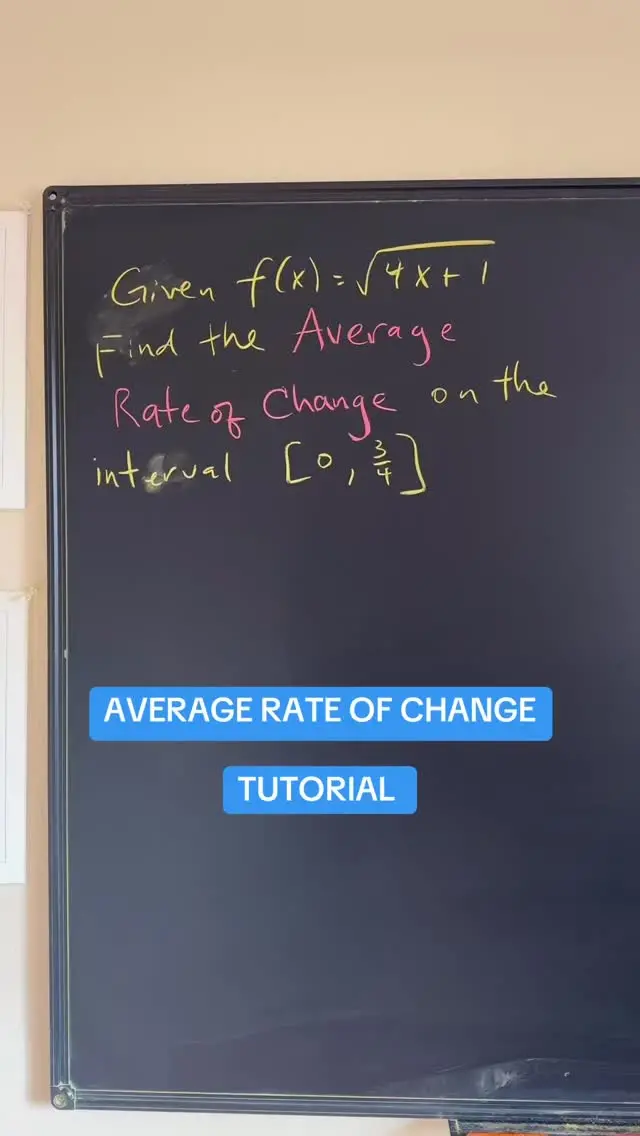 Given f(x) = √4x + 1
Find the Average
Rate of Change on the
interval [0, 3/4]
AVERAGE RATE OF CHANGE
TUTORIAL